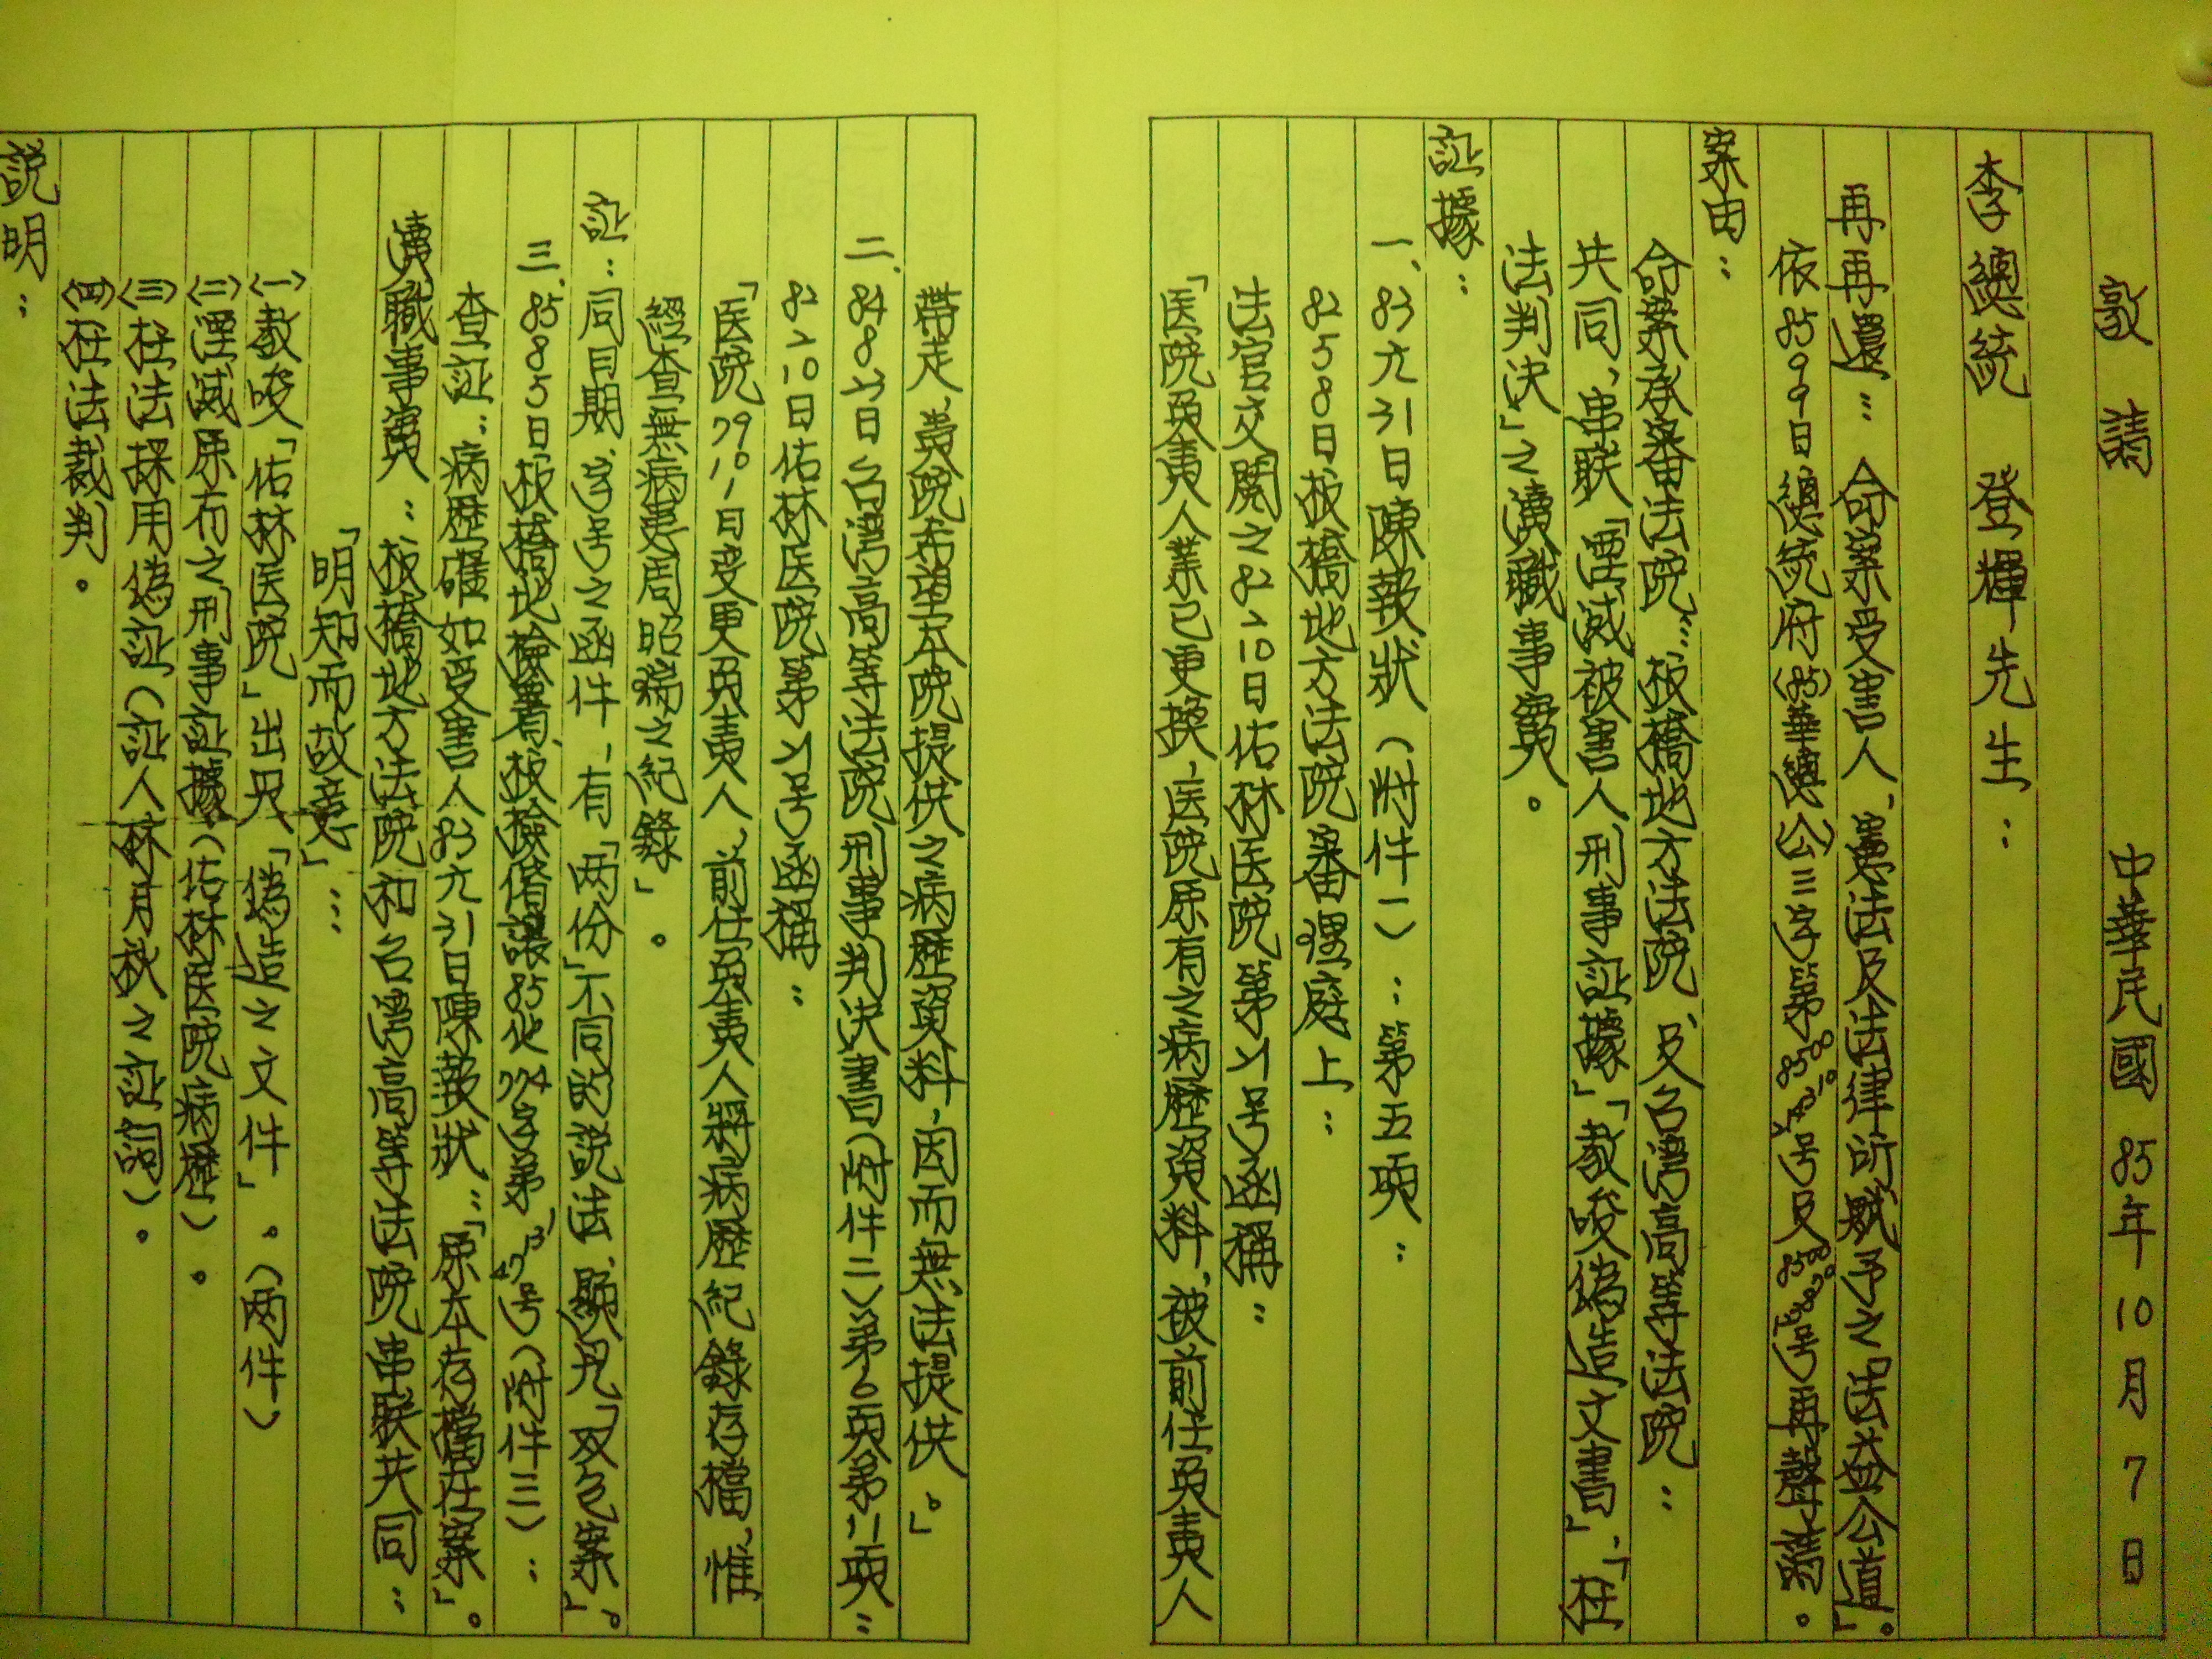 敬請　中華民國85年10月7日
李總統　登輝先生：
再再還：命案受害人、憲法及法律所賦予之「法益公道」。
依85 9 9日總統府(85)華總(公)三字第 号及 号再聲請。
案由：
命案承審法院：板橋地方法院、及台湾高等法院：
共同、串联「湮滅被害人刑事証據」「教唆偽造文書」、「枉
法判決」之瀆職事實。
証據：
一、83 31日陳報狀（附件一）：第五項：
82 5 8日板橋地方法院審理庭上：
法官交閱之82 2 10日佑林医院第 号函稱：
「医院負責人業已更換，医院原有之病歷資料，被前任負責人
帶走，貴院希望本院提供之病歷資料，因而無法提供。」
二、84 8 日台湾高等法院刑事判決書（附件二）第6頁第11項：
82 2 10日佑林医院第 号函稱：
「医院79 10 1日变更負責人，前任負責人將病歷紀錄存檔，惟
經查無病患周昭瑞之紀錄」。
証：同日期、字号之函件，有「两份」不同的說法，顯見「双包案」。
三、85 8 5日板橋地檢署、板檢 85 字第 号（附件三）：
查証：病歷確如受害人83 31日陳報狀：「原本存檔在案」。
瀆職事實：板橋地方法院和台湾高等法院串联共同：
「明知而故意」：
(一)教唆「佑林医院」出具「偽造之文件」。（两件）
(二)湮滅原有之刑事証據（佑林医院病歷）。
(三)枉法採用偽証（証人林月 之証詞）。
(四)枉法裁判。
說明：